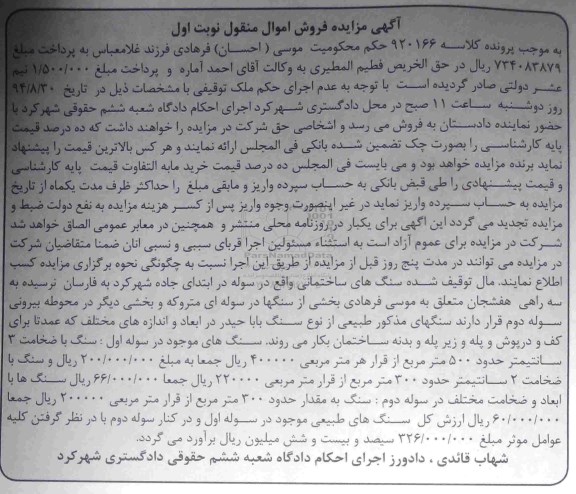 آگهی مزایده فروش اموال منقول نوبت اول
به موجب پرونده کلاسه ۹۲۰۱۶۶ حکم محکومیت موسی ( احسان) فرهادی فرزند غلامعباس به پرداخت مبلغ
۷۳۴۰۸۳۸۷۹ ریال در حق الخریص فطیم المطیری به وکالت آقای احمد آماره و پرداخت مبلغ ۱/۵۰۰/۰۰۰ نیم
عشر دولتی صادر گردیده است با توجه به عدم اجرای حکم ملک توقیفی با مشخصات ذیل در تاریخ ۹۴/۸/۳۰
روز دوشنبه ساعت ۱۱ صبح در محل دادگستری شهرکرد اجرای احکام دادگاه شعبه ششم حقوقی شهرکرد با
حضور نماینده دادستان به فروش می رسد و اشخاصی حق شرکت در مزایده را خواهند داشت که ده درصد قیمت
پایه کارشناسی را بصورت چک تضمین شده بانکی فی المجلس ارائه نمایند و هر کس بالاترین قیمت را پیشنهاد
نماید برنده مزایده خواهد بود و می بایست فی المجلس ده درصد قیمت خرید مابه التفاوت قیمت پایه کارشناسی
و قیمت پیشنهادی را طی قبض بانکی به حساب سپرده واریز و مابقی مبلغ را حداکثر ظرف مدت یکماه از تاریخ
مزایده به حساب سپرده واریز نماید در غیر اینصورت وجوه واریز پس از کسر هزینه مزایده به نفع دولت ضبط و
مزایده تجدید می گردد این اگهی برای یکبار در روزنامه محلی منتشر و همچنین در معابر عمومی الصاق خواهد شد
شرکت در مزایده برای عموم آزاد است به استثناء مسئولین اجرا قربای سببی و نسبی انان ضمنا متقاضیان شرکت
در مزایده می توانند در مدت پنج روز قبل از مزایده از طریق این اجرا نسبت به چگونگی نحوه برگزاری مزایده کسب
اطلاع نمایند. مال توقیف شده سنگ های ساختمانی واقع در سوله در ابتدای جاده شهرکرد به فارسان نرسیده به
سه راهی هفشجان متعلق به موسی فرهادی بخشی از سنگها در سوله ای متروکه و بخشی دیگر در محوطه بیرونی
سوله دوم قرار دارند سنگهای مذکور طبیعی از نوع سنگ بابا حیدر در ابعاد و اندازه های مختلف که عمدتا برای
کف و درپوش و پله و زیر پله و بدنه ساختمان بکار می روند. سنگ های موجود در سوله اول : سنگ با ضخامت ۳
سانتیمتر حدود ۵۰۰ متر مربع از قرار هر متر مربعی ۴۰۰۰۰۰ ریال جمعا به مبلغ ۲۰۰/۰۰۰/۰۰۰ ریال و سنگ با
ضخامت ۲ سانتیمتر حدود ۳۰۰ متر مربع از قرار متر مربعی ۲۲۰۰۰۰ ریال جمعا ۶۶/۰۰۰/۰۰۰ ریال سنگ ها با
ابعاد و ضخامت مختلف در سوله دوم : سنگ به مقدار حدود ۳۰۰ متر مربع از قرار متر مربعی ۲۰۰۰۰۰ ریال جمعا
۶۰/۰۰۰/۰۰۰ ریال ارزش کل سنگ های طبیعی موجود در سوله اول و در کنار سوله دوم با در نظر گرفتن کلیه
عوامل موثر مبلغ ۳۲۶/۰۰۰/۰۰۰ سیصد و بیست و شش میلیون ریال برآورد می گردد.
شهاب قائدی ، دادورز اجرای احکام دادگاه شعبه ششم حقوقی دادگستری شهرکرد